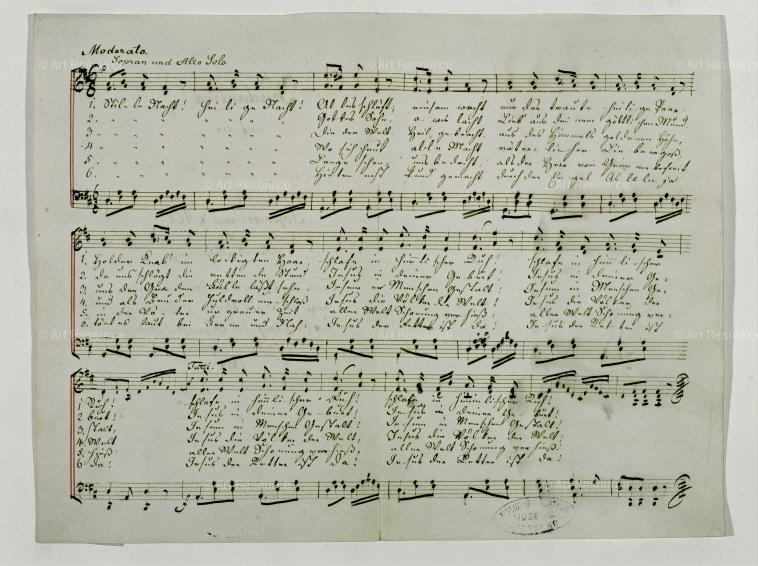 Moderato.
Sopran und Alto Solo
1. Stil-le Nacht! hei-li ge Nacht! Al les schläft; einsam wacht nur das traute hei-li ge Paar.
2. Gottes Sohn, o wie lacht Lieb aus deinem göttlichen Mund,
3. Die der Welt Heil gebracht aus des Himmels goldenen Höhn,
4. Wo sich heut alle Macht väter-li-cher Liebe ergoß,
5. Lange schon uns bedacht, als der Herr vom Grimme befreit
6. Hirten erst kund gemacht durch der Engel Al le lu ja
1. Holder Knab' im lockigten Haar; schlafe in himmlischer Ruh! schlafe in himmlischer
2. da uns schlägt die rettende Stund Jesus in deiner Geburt! Jesus in deiner Ge-
3. uns der Gnaden Fülle läßt sehn, Jesum in Menschen Gestalt! Jesum in Menschen Ge-
4. und als Bruder Huldvoll umschloß Jesus die Völker der Welt! Jesus die Völker der
5. in der Väter urgrauer Zeit aller Welt Schonung verhieß! aller Welt Schonung ver-
6. tönt es laut bei Ferne und Nah, Jesus der Retter ist da! Jesus der Retter ist
Tutti.
1 Ruh! schlafe in himmlischer Ruh! schlafe in himmlischer Ruh!
2 burt! Jesus in deiner Geburt! Jesus in deiner Geburt!
3 stalt, Jesum in Menschen Gestalt! Jesum in Menschen Gestalt!
4 Welt Jesus die Völker der Welt, Jesus die Völker der Welt
5 hieß aller Welt Schonung verhieß! aller Welt Schonung verhieß!
6 da! Jesus der Retter ist da! Jesus der Retter ist da!
© Art Resource